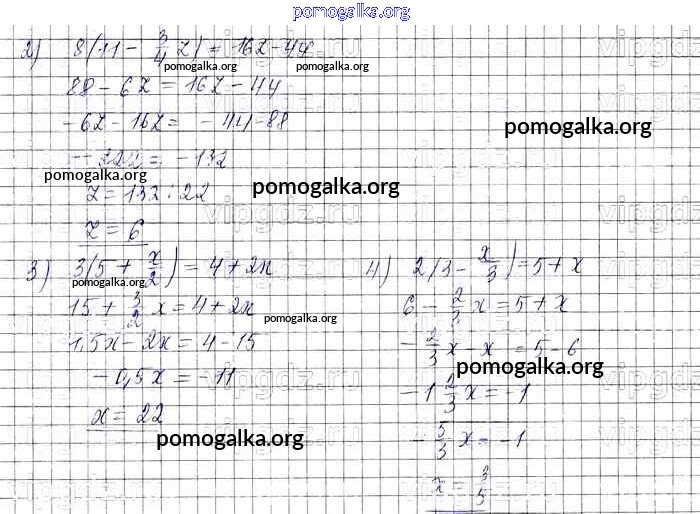 pomogalka.org
2) 8(11 - 3/4 z) = 16z - 44
pomogalka.org pomogalka.org
88 - 6z = 16z - 44
pomogalka.org
-6z - 16z = -44 - 88
pomogalka.org
-22z = -132
pomogalka.org
z = 132 : 22
pomogalka.org
vipgdz.ru
z = 6
3) 3(5 + x/2) = 4 + 2x
pomogalka.org
15 + 3/2 x = 4 + 2x
pomogalka.org
1,5x - 2x = 4 - 15
-0,5x = -11
x = 22
pomogalka.org
4) 2(3 - x/3) = 5 + x
6 - 2/3 x = 5 + x
-2/3 x - x = 5 - 6
pomogalka.org
-1 2/3 x = -1
-5/3 x = -1
x = 3/5